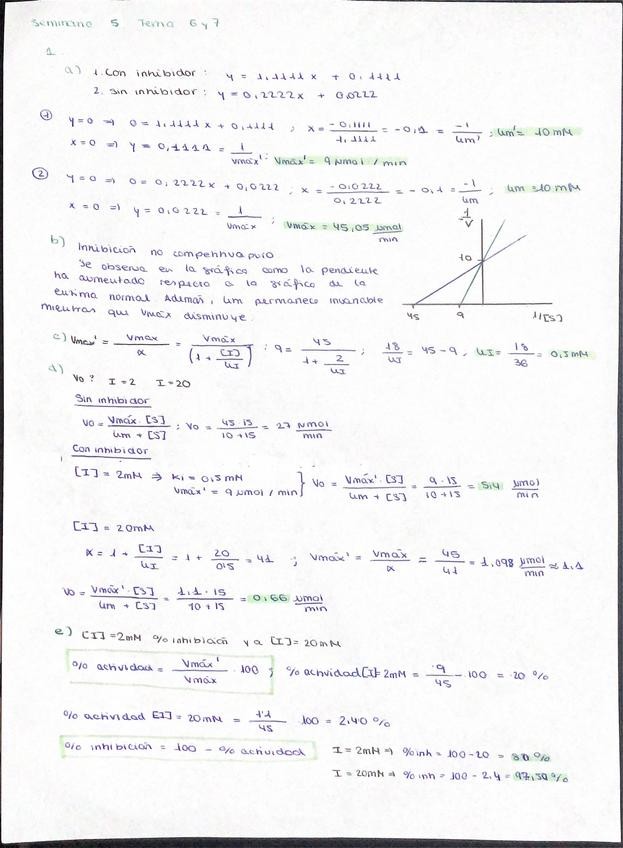 Seminario 5 Tema 6 y 7
1.
a) 1. Con inhibidor: y = 1,1111x + 0,1111
2. Sin inhibidor: y = 0,2222x + 0,0222
① y=0 ⇒ 0 = 1,1111x + 0,1111 ; x = -0,1111/1,1111 = -0,1 = -1/Km' ; Km' = 10 mM
x=0 ⇒ y = 0,1111 = 1/Vmáx' ; Vmáx' = 9 μmol/min
② y=0 ⇒ 0 = 0,2222x + 0,0222 ; x = -0,0222/0,2222 = -0,1 = -1/Km ; Km = 10 mM
x=0 ⇒ y = 0,0222 = 1/Vmáx ; Vmáx = 45,05 μmol/min
1/V
10
45 9 1/[S]
b) Inhibición no competitiva puro
Se observa en la gráfica como la pendiente
ha aumentado respecto a la gráfica de la
enzima normal. Además, Km permanece invariable
mientras que Vmáx disminuye.
c) Vmax' = Vmax/α = Vmáx/(1 + [I]/KI) ; 9 = 45/(1 + 2/KI) ; 18/KI = 45-9, KI = 18/36 = 0,5 mM
d)
Vo? I=2 I=20
Sin inhibidor
Vo = Vmáx·[S]/(Km + [S]) ; Vo = 45·15/(10+15) = 27 μmol/min
Con inhibidor
[I] = 2mM ⇒ Ki = 0,5 mM
Vmáx' = 9 μmol/min } Vo = Vmáx'·[S]/(Km + [S]) = 9·15/(10+15) = 5,4 μmol/min
[I] = 20mM
α = 1 + [I]/KI = 1 + 20/0,5 = 41 ; Vmáx' = Vmáx/α = 45/41 = 1,098 μmol/min ≈ 1,1
Vo = Vmáx'·[S]/(Km + [S]) = 1,1·15/(10+15) = 0,66 μmol/min
e) [I]=2mM % inhibición y a [I]=20mM
% actividad = Vmáx'/Vmáx · 100 ; % actividad [I]=2mM = 9/45 · 100 = 20 %
% actividad [I] = 20mM = 1,1/45 · 100 = 2,40 %
% inhibición = 100 - % actividad
I = 2mM ⇒ % inh = 100-20 = 80 %
I = 20mM ⇒ % inh = 100 - 2,4 = 97,50 %